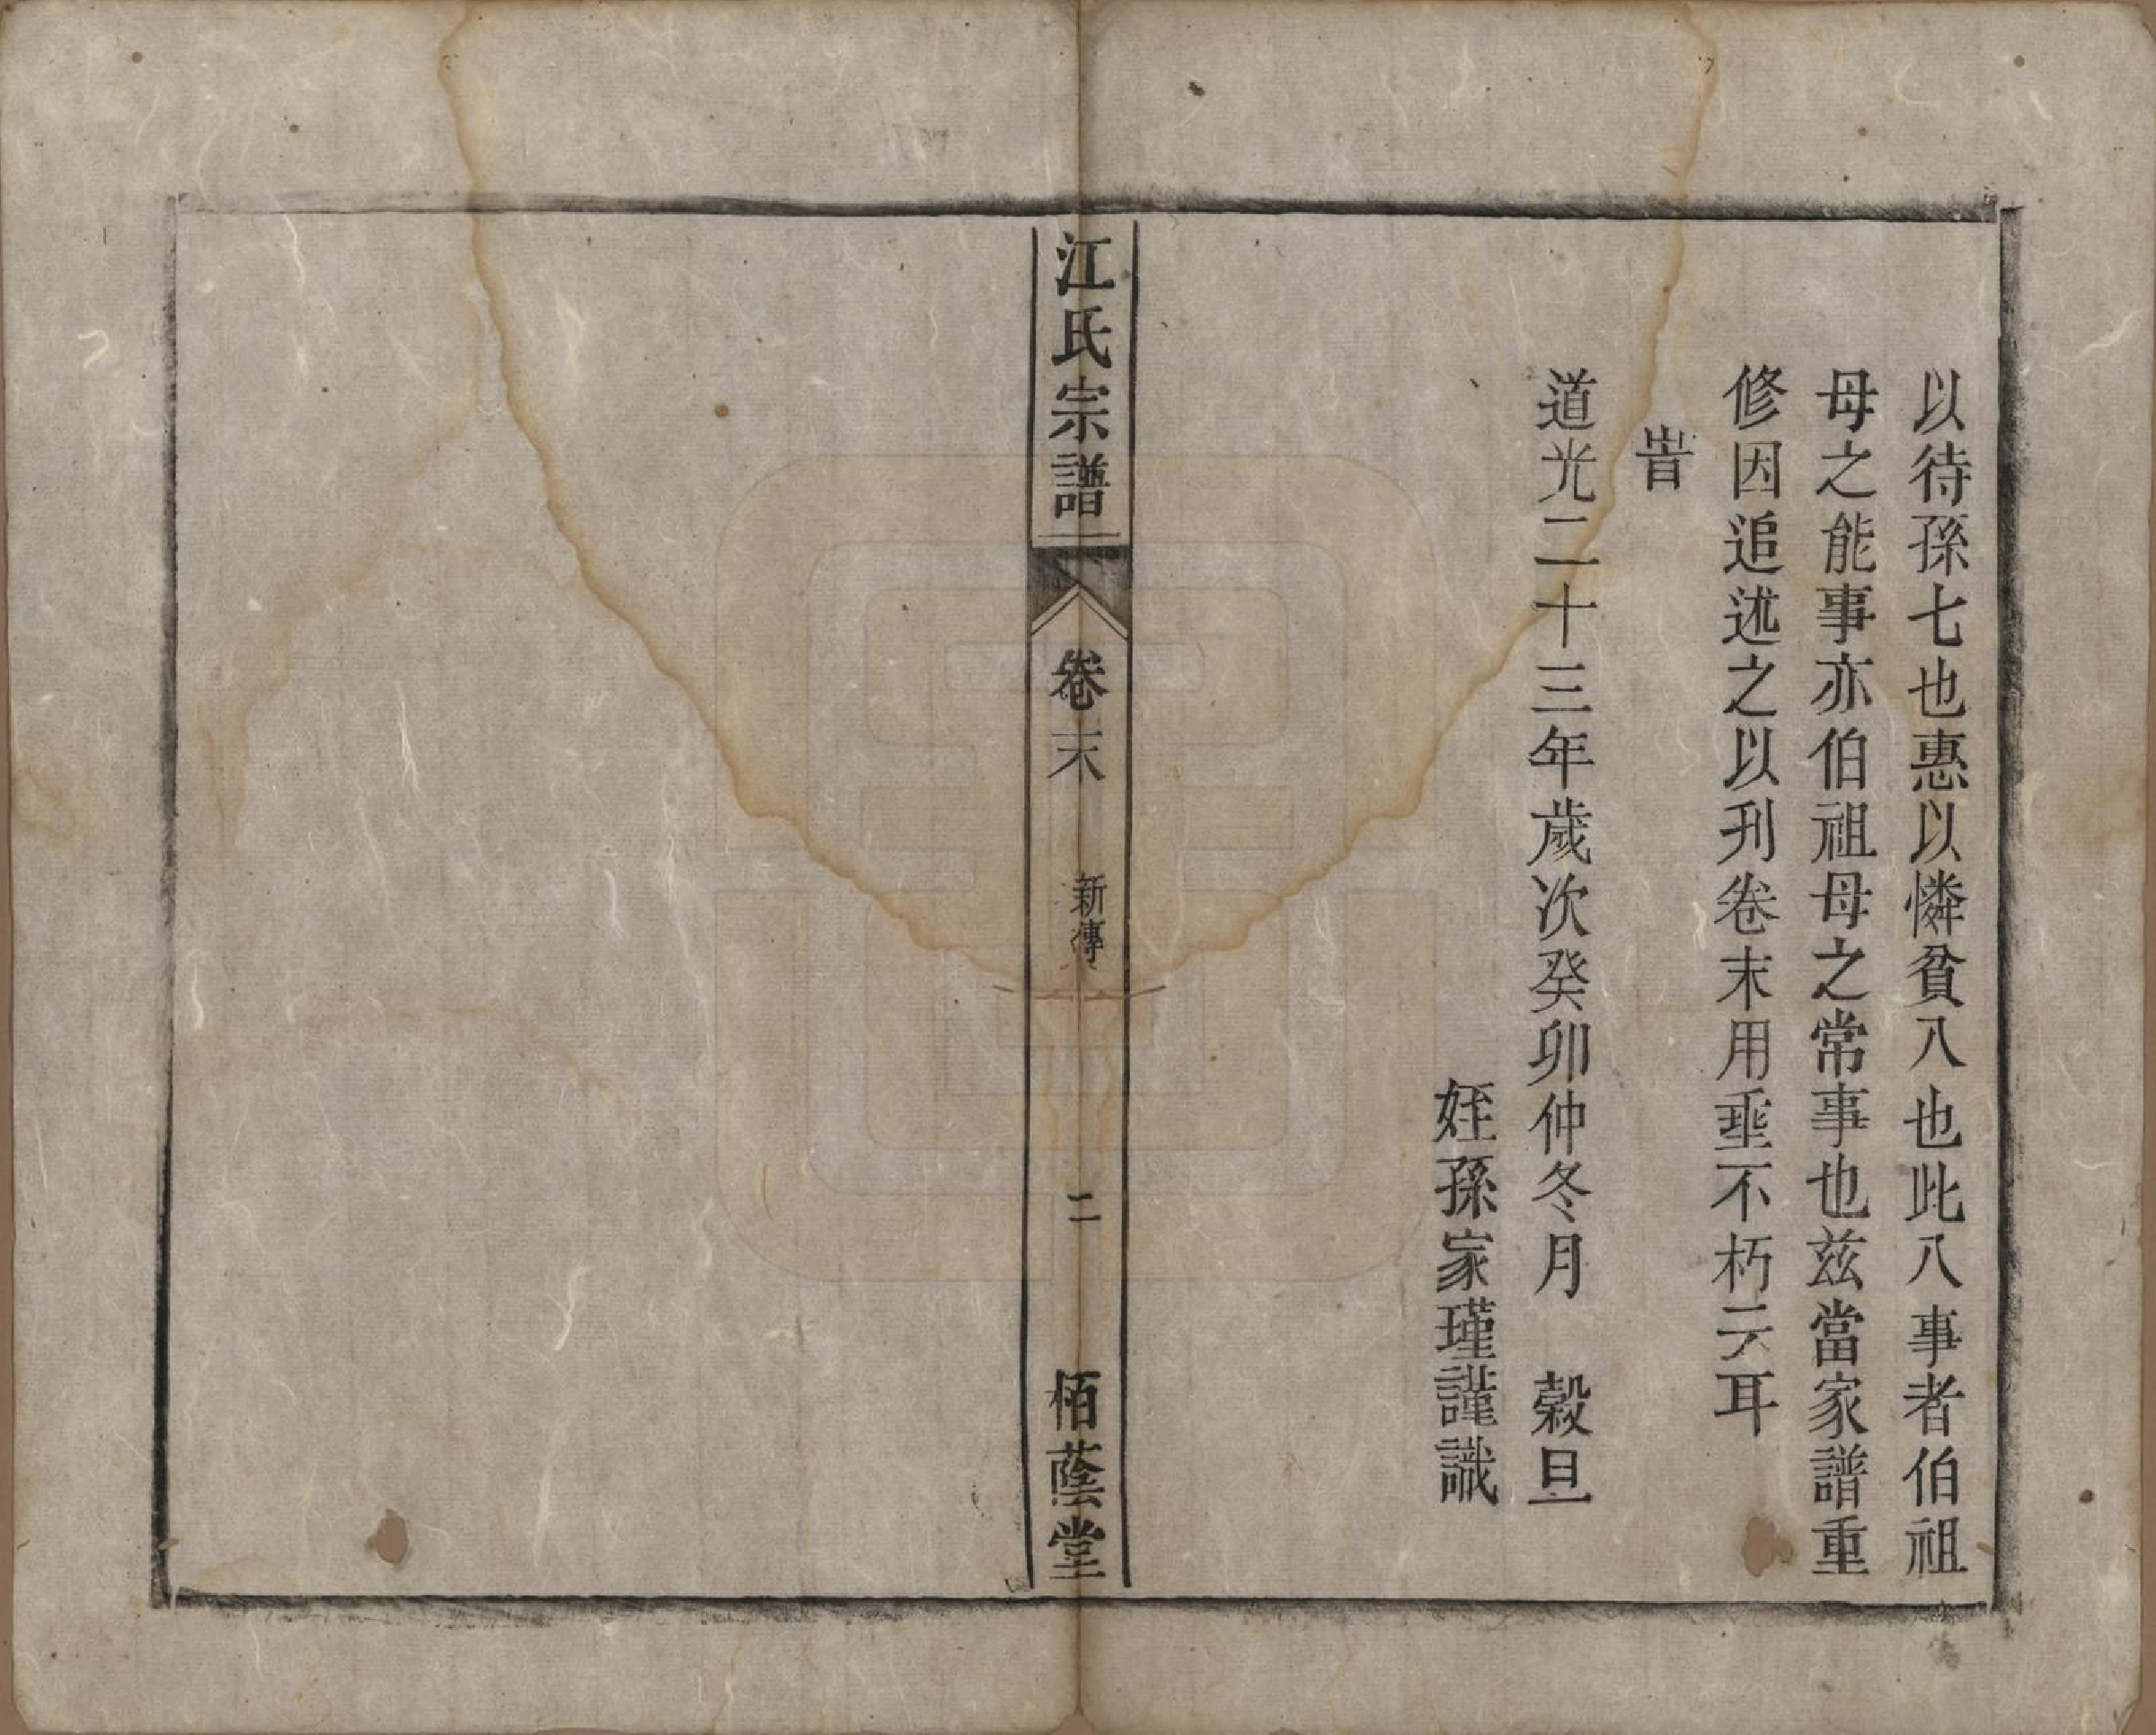 以待孫七也惠以憐貧八也此八事者伯祖
母之能事亦伯祖母之常事也兹當家譜重
修因追述之以刋卷末用垂不朽云耳
旹
道光二十三年歲次癸卯仲冬月　穀旦
姪孫家瑾謹識
江氏宗譜　卷末　新傳　二　栢蔭堂